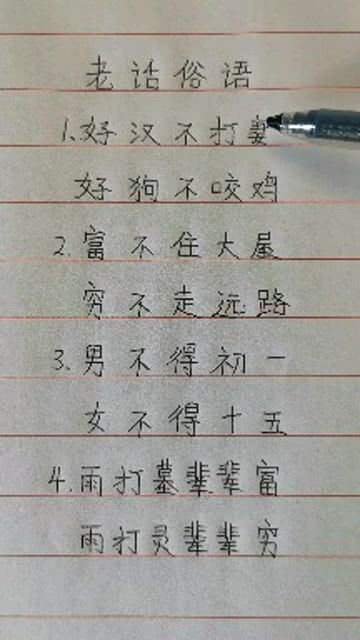 老话俗语
1.好汉不打妻
好狗不咬鸡
2.富不住大屋
穷不走远路
3.男不得初一
女不得十五
4.雨打墓辈辈富
雨打灵辈辈穷